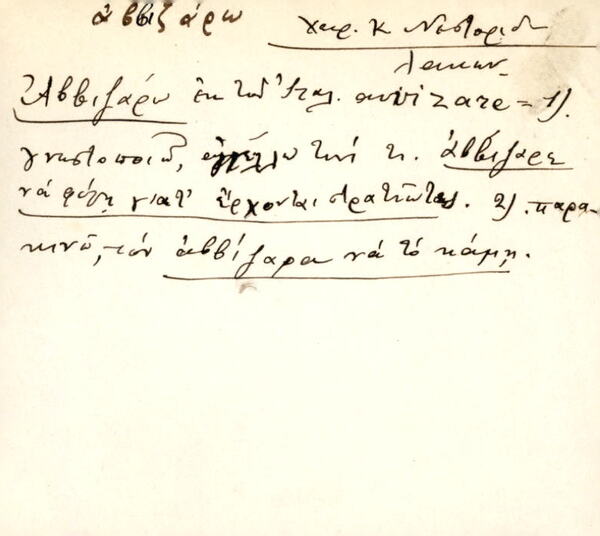 ἀββιζάρω
χειρ. Κ Νεστορίδ
Λακων.
Ἀββιζάρω ἐκ τοῦ Ἰταλ. avvizare = 1).
γνωστοποιῶ, ἀγγέλω τινί τι. ἀββίζαρε
νά φύγῃ γιατ' ἔρχονται στρατιῶται. 2) παρα-
κινῶ, τόν ἀββίζαρα νά τό κάμῃ.